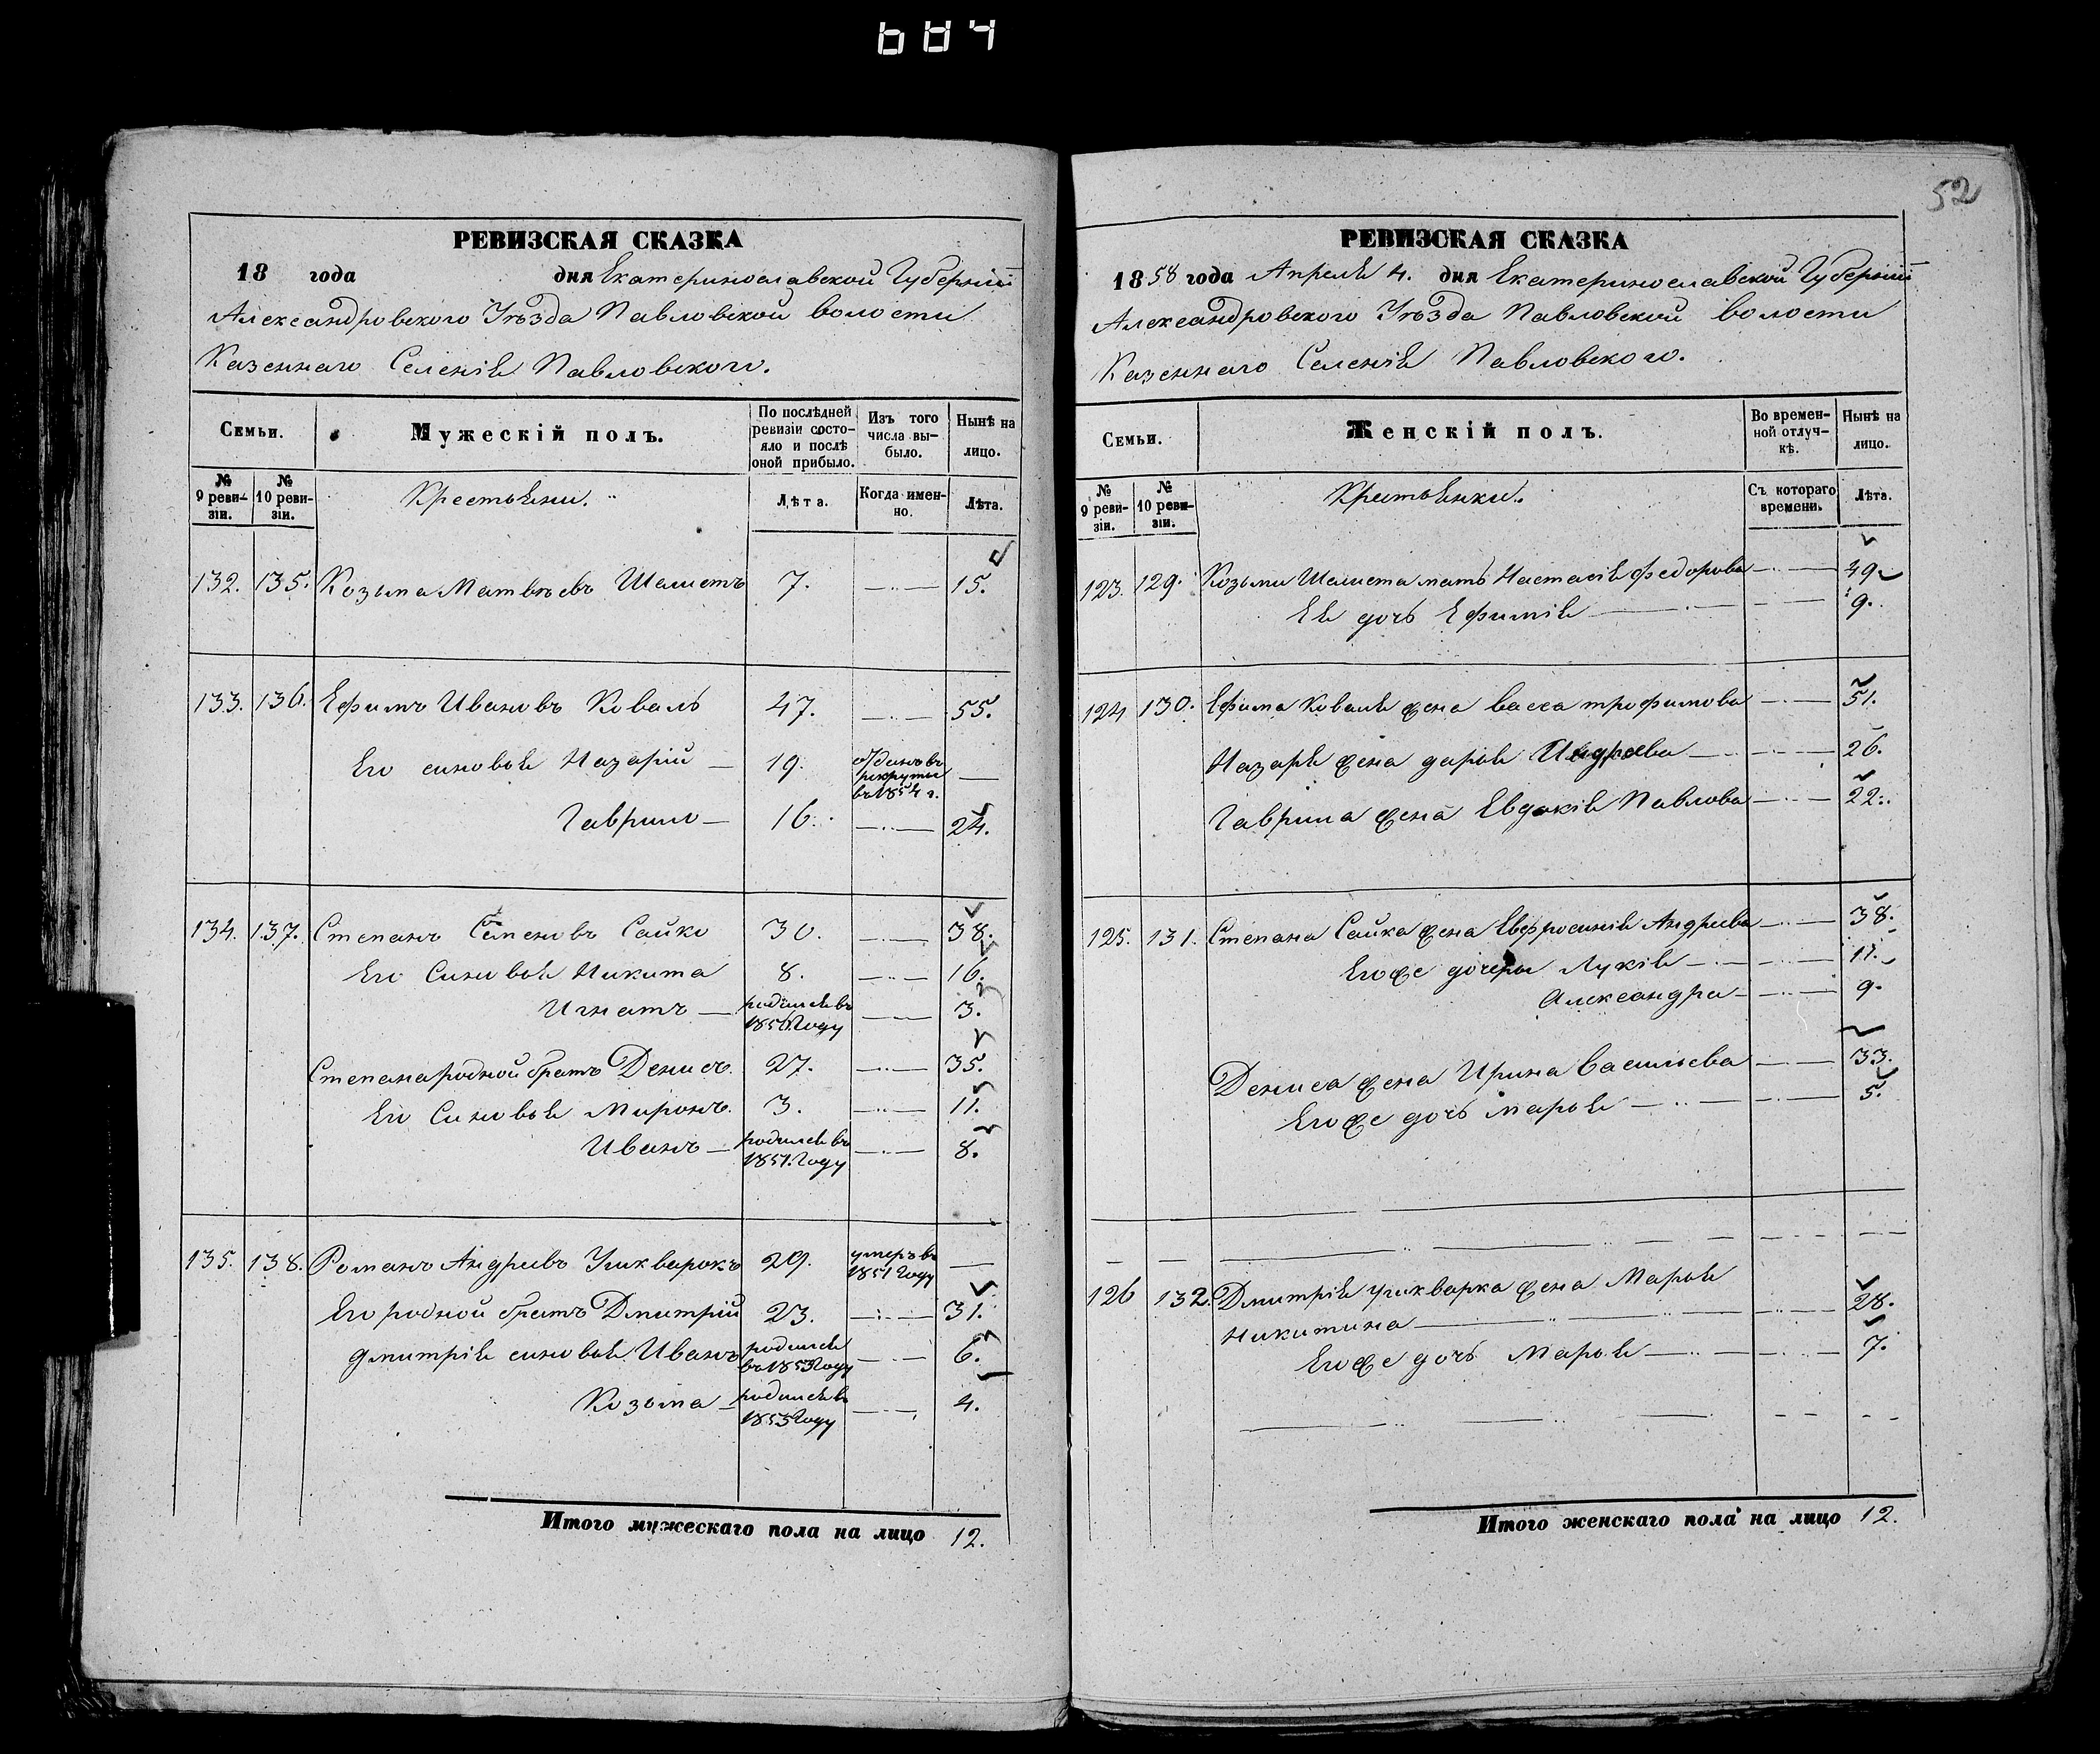 684
52
РЕВИЗСКАЯ СКАЗКА
18 года дня Екатеринославской Губерніи
Александровского Уѣзда Павловской волости
Казеннаго Селенія Павловского.
Семьи.
Мужескій полъ.
По послѣдней ревизіи состояло и послѣ оной прибыло.
Изъ того числа выбыло.
Нынѣ на лицо.
№ 9 ревизіи.
№ 10 ревизіи.
Крестьяни.
Лѣта.
Когда именно.
Лѣта.
132. 135. Козьма Матвѣевъ Шаметъ 7. 15.
133. 136. Ефимъ Ивановъ Коваль 47. 55.
Его сыновья Назарій 19. отданъ въ рекруты въ 1854 г.
Гаврило 16. 24.
134. 137. Степанъ Семеновъ Сайко 30. 38.
Его Сыновья Никита 8. 16.
Игнатъ родился въ 1856 Году 3.
Степана родной братъ Денисъ. 27. 35.
Его Сыновья Миронъ. 3. 11.
Иванъ родился въ 1851. Году 8.
135. 138. Романъ Андреевъ Ушкварокъ 29. умеръ въ 1851 Году
Его родной братъ Дмитрій 23. 31.
Дмитрія сыновья Иванъ родился въ 1853 Году 6.
Козьма родился въ 1853 Году 4.
Итого мужескаго пола на лицо 12.
РЕВИЗСКАЯ СКАЗКА
1858 года Апреля 4. дня Екатеринославской Губерніи
Александровского Уѣзда Павловской волости
Казеннаго Селенія Павловского.
Семьи.
Женскій полъ.
Во временной отлучкѣ.
Нынѣ на лицо.
№ 9 ревизіи.
№ 10 ревизіи.
Крестьянки.
Съ котораго времени.
Лѣта.
123. 129. Козьми Шамета мать Настасія Федорова 49.
Ея дочь Ефимія 9.
124 130. Ефима Коваля жена Васса трофимова 51.
Назаря жена дарья Андреева 26.
Гаврила жена Евдокія Павлова 22.
125. 131. Степана Сайка жена Евфросинія Андреева 38.
Егоже дочеры Лукія 11.
Александра 9.
Дениса жена Ирина Васильева 33.
Егоже дочь Марья 5.
126 132. Дмитрія ушкварка жена Марья
Никитина 28.
Егоже дочь Марья 7.
Итого женскаго пола на лицо 12.